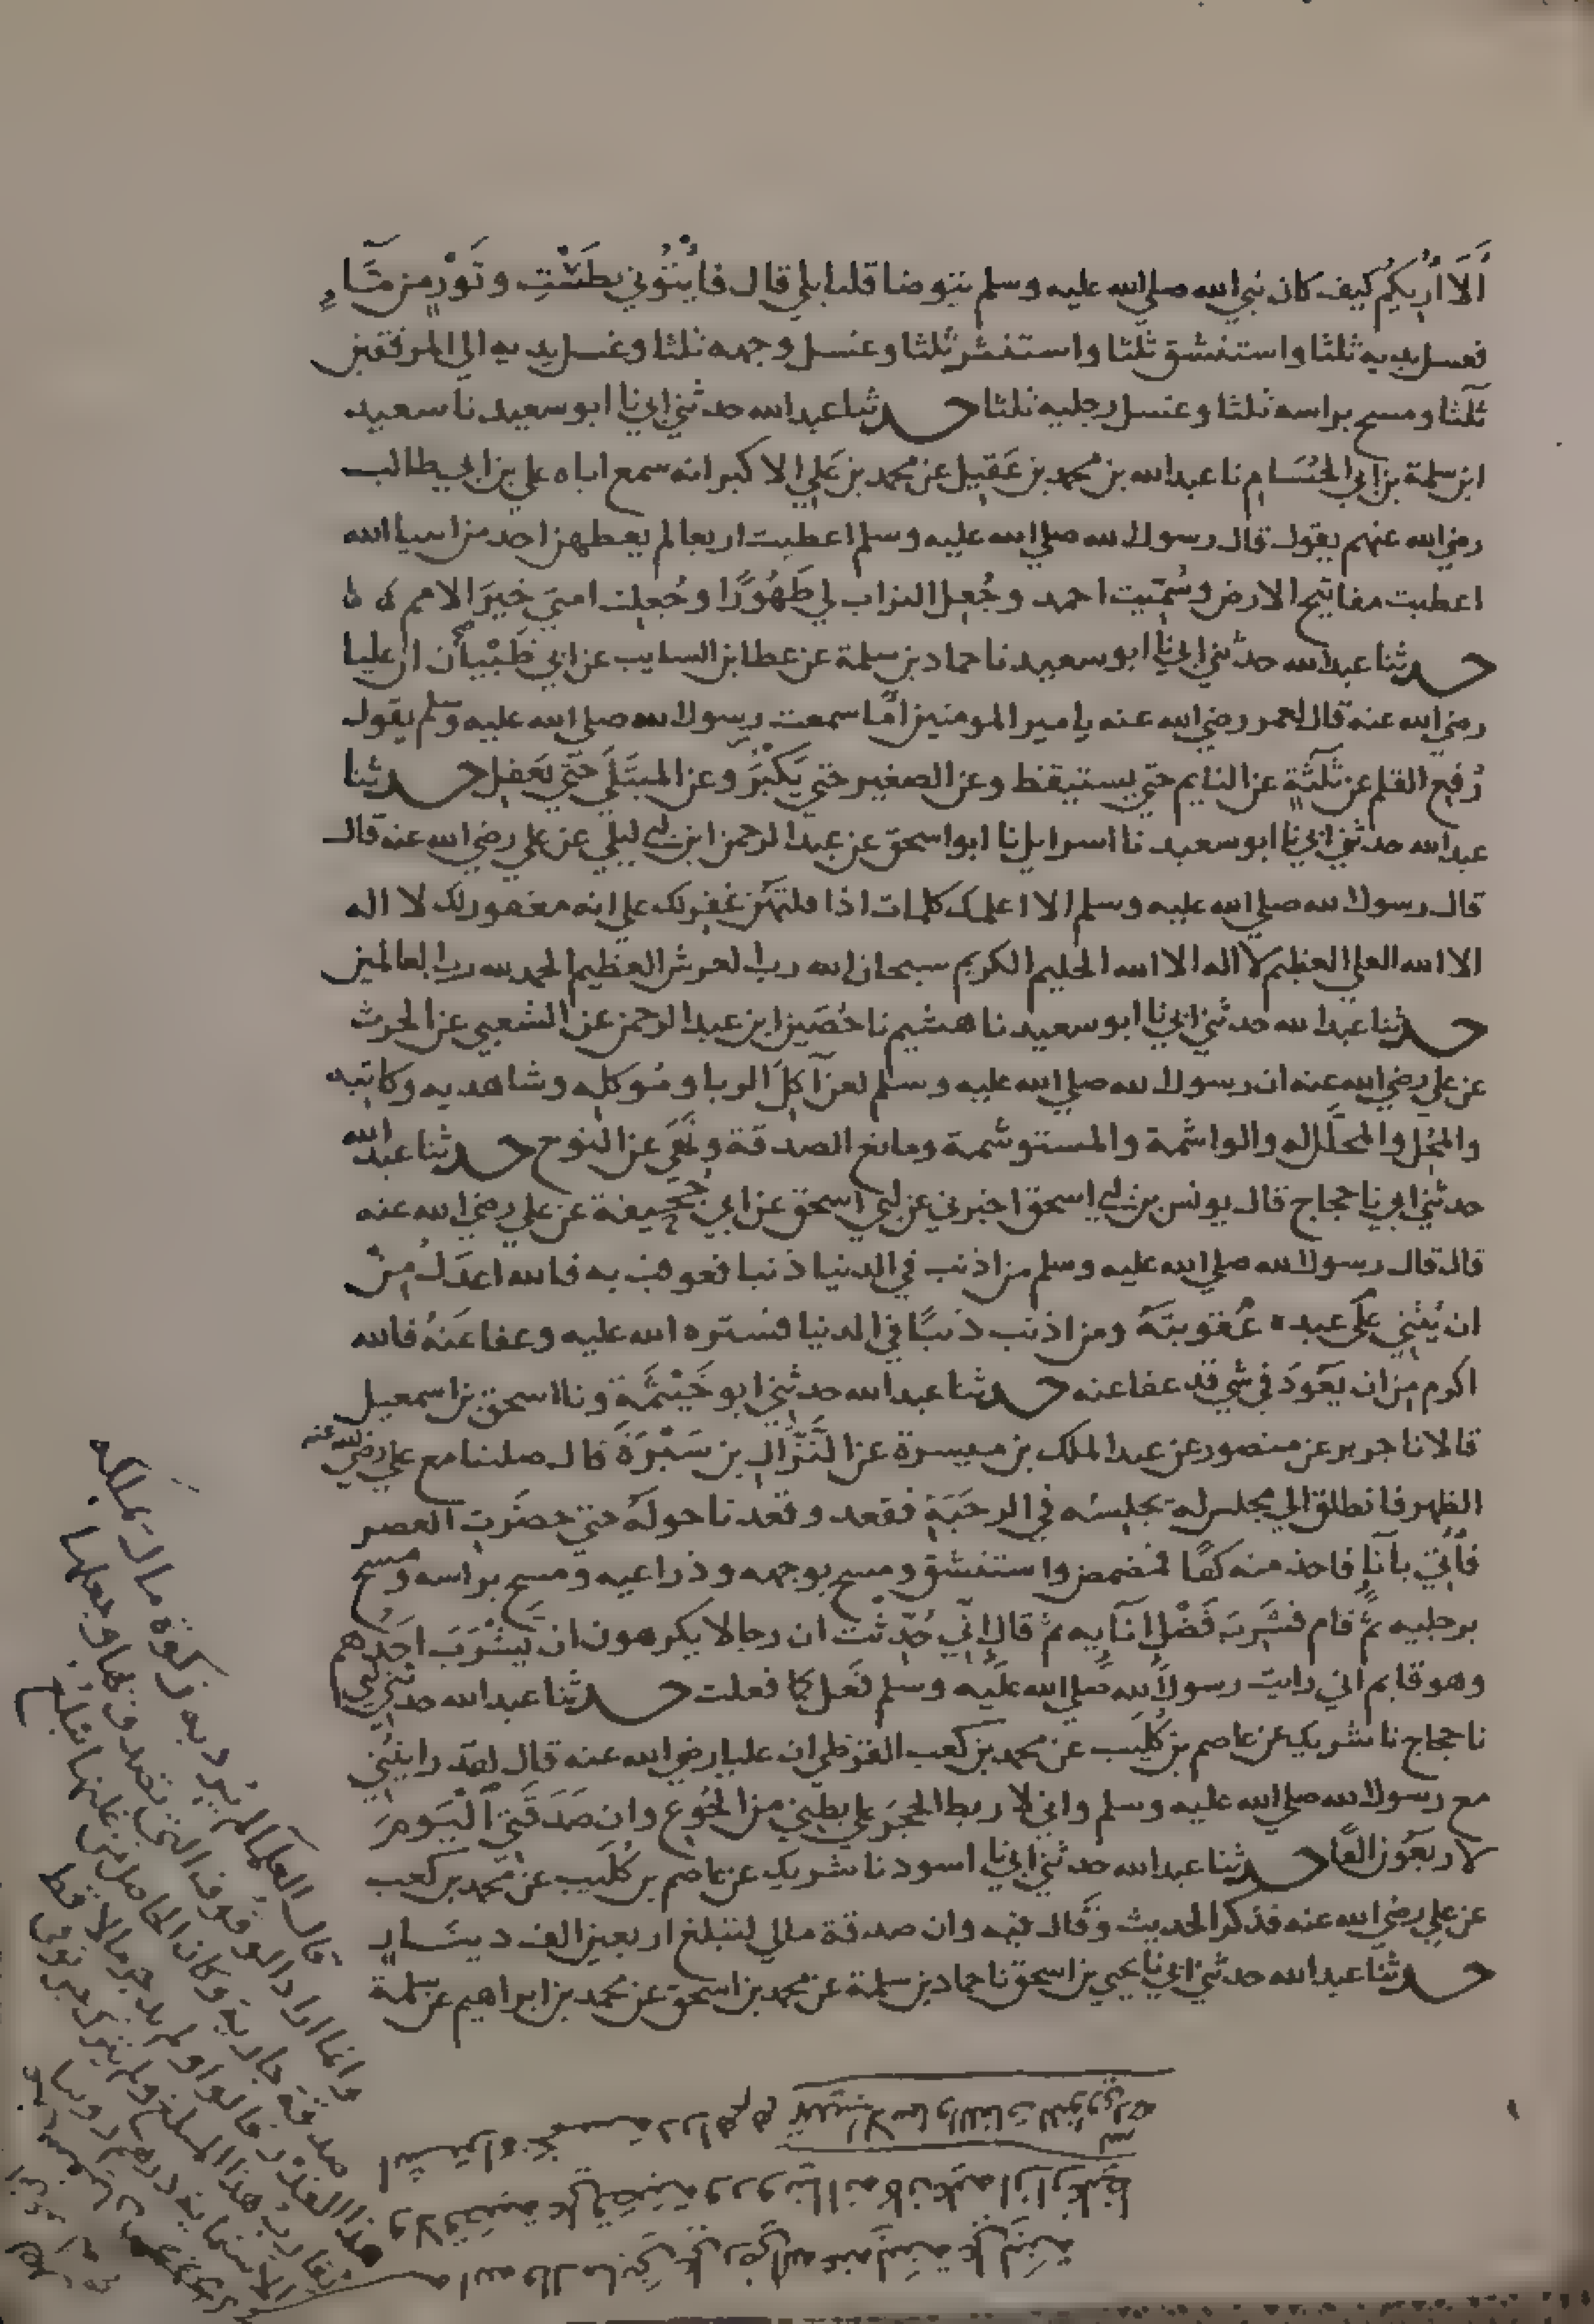 أَلَا أُرِيكُم كيف كان نبي الله صلى الله عليه وسلم يتوضا قلنا بلى قال فأْتُوني بطَسْتٍ وتَوْرٍ من مَآءٍ
فغسل يديه ثلثا واستنشق ثلثا واستنثر ثلثا وغسل وجهه ثلثا وغسل يديه الى المرفقين
ثلثا ومسح براسه ثلثا وغسل رجليه ثلثا حدثنا عبد الله حدثني ابي نا ابو سعيد نا سعيد
ابن سلمة بن ابي الحُسَام نا عبد الله بن محمد بن عَقيل عن محمد بن علي الاكبر انه سمع اباه علي بن ابي طالب
رضي الله عنهم يقول قال رسول الله صلى الله عليه وسلم اعطيت اربعا لم يعطهن احد من انبيا الله
اعطيت مفاتيح الارض وسُمّيت احمد وجُعِل التراب لي طَهُورًا وجُعِلت امتي خيرَ الامم
حدثنا عبد الله حدثني ابي نا ابو سعيد نا حماد بن سلمة عن عطا بن السايب عن ابي ظَبْيان ان عليا
رضي الله عنه قال لعمر رضي الله عنه يا امير المومنين امَا سمعت رسول الله صلى الله عليه وسلم يقول
رُفِع القلم عن ثلثَةٍ عن النايم حتى يستيقظ وعن الصغير حتى يَكْبُرَ وعن المبتَلَى حتى يَعقِل حدثنا
عبد الله حدثني ابي نا ابو سعيد نا اسرايل نا ابو اسحق عن عبد الرحمن ابن ابي ليلى عن علي رضي الله عنه قال
قال رسول الله صلى الله عليه وسلم الا اعلمك كلمات اذا قلتهن غفر لك على انه مغفور لك لا اله
الا الله العلي العظيم لا اله الا الله الحليم الكريم سبحان الله رب العرش العظيم الحمد لله رب العالمين
حدثنا عبد الله حدثني ابي نا ابو سعيد نا هشيم نا حُصَين ابن عبد الرحمن عن الشعبي عن الحرث
عن علي رضي الله عنه ان رسول الله صلى الله عليه وسلم لعن آكِلَ الربا ومُوكله وشاهديه وكاتبه
والمُحِل والمحلَّل له والواشمة والمستوشمة ومانع الصدقة ونَهَى عن النوح حدثنا عبد الله
حدثني ابي نا حجاج قال يونس بن ابي اسحق اخبرني عن ابي اسحق عن ابي جحيفة عن علي رضي الله عنه
قال قال رسول الله صلى الله عليه وسلم من اذنب في الدنيا ذنبا فعوقب به فالله اعدَلُ مِنْ
ان يُثَنِّي على عبده عُقوبتَهُ ومن اذنب ذنبًا في الدنيا فستره الله عليه وعفا عنهُ فالله
اكرم من ان يَعُودَ في شي قد عفا عنه حدثنا عبد الله حدثني ابو خَيْثَمَة ونا اسحق بن اسمعيل
قالا نا جرير عن منصور عن عبد الملك بن ميسرة عن النَّزَّال بن سَبْرَةَ قال صلينا مع علي رضي الله عنه
الظهر فانطلق الى مجلس له يجلسُه في الرحَبَةِ فقعد وقعدنا حولَهُ حتى حضَرَت العصر
فأُتي بانآءٍ فاخذ منه كفًا فتمضمض واستنشق ومسح بوجهه وذراعيه ومسح براسه ومسح
برجليه ثم قام فشَرِبَ فَضْلَ إنآيه ثم قال إنّي حُدّثت ان رجالا يكرهون ان يَشْرَبَ احَدُهم
وهو قايم اني رايت رسول الله صلى الله عليه وسلم فَعَل كما فعلت حدثنا عبد الله حدثني ابي
نا حجاج نا شريك عن عاصم بن كُلَيب عن محمد بن كعب القرظي ان عليا رضي الله عنه قال لقد رايتُني
مع رسول الله صلى الله عليه وسلم واني لاربط الحجَرَ على بطني من الجُوع وان صَدَقَتي الْيَومَ
لاربَعُون الفًا حدثنا عبد الله حدثني ابي نا اسود نا شريك عن عاصم بن كُلَيب عن محمد بن كعب
عن علي رضي الله عنه فذكر الحديث وقال فيه وان صدقة مالي لتبلغ اربعين الف دينار
حدثنا عبد الله حدثني ابي نا يحيى بن اسحق نا حماد بن سلمة عن محمد بن اسحق عن محمد بن ابراهيم عن سلمة
قال العلمآ لم يُرِد به زكوة مال يملكه
وانما اراد الوقوف التي تصدق بها وجعلها
صدقة جارية وكان الحاصل من غلتها تبلغ
هذا القدر قالوا ولم يدخر مالا قط